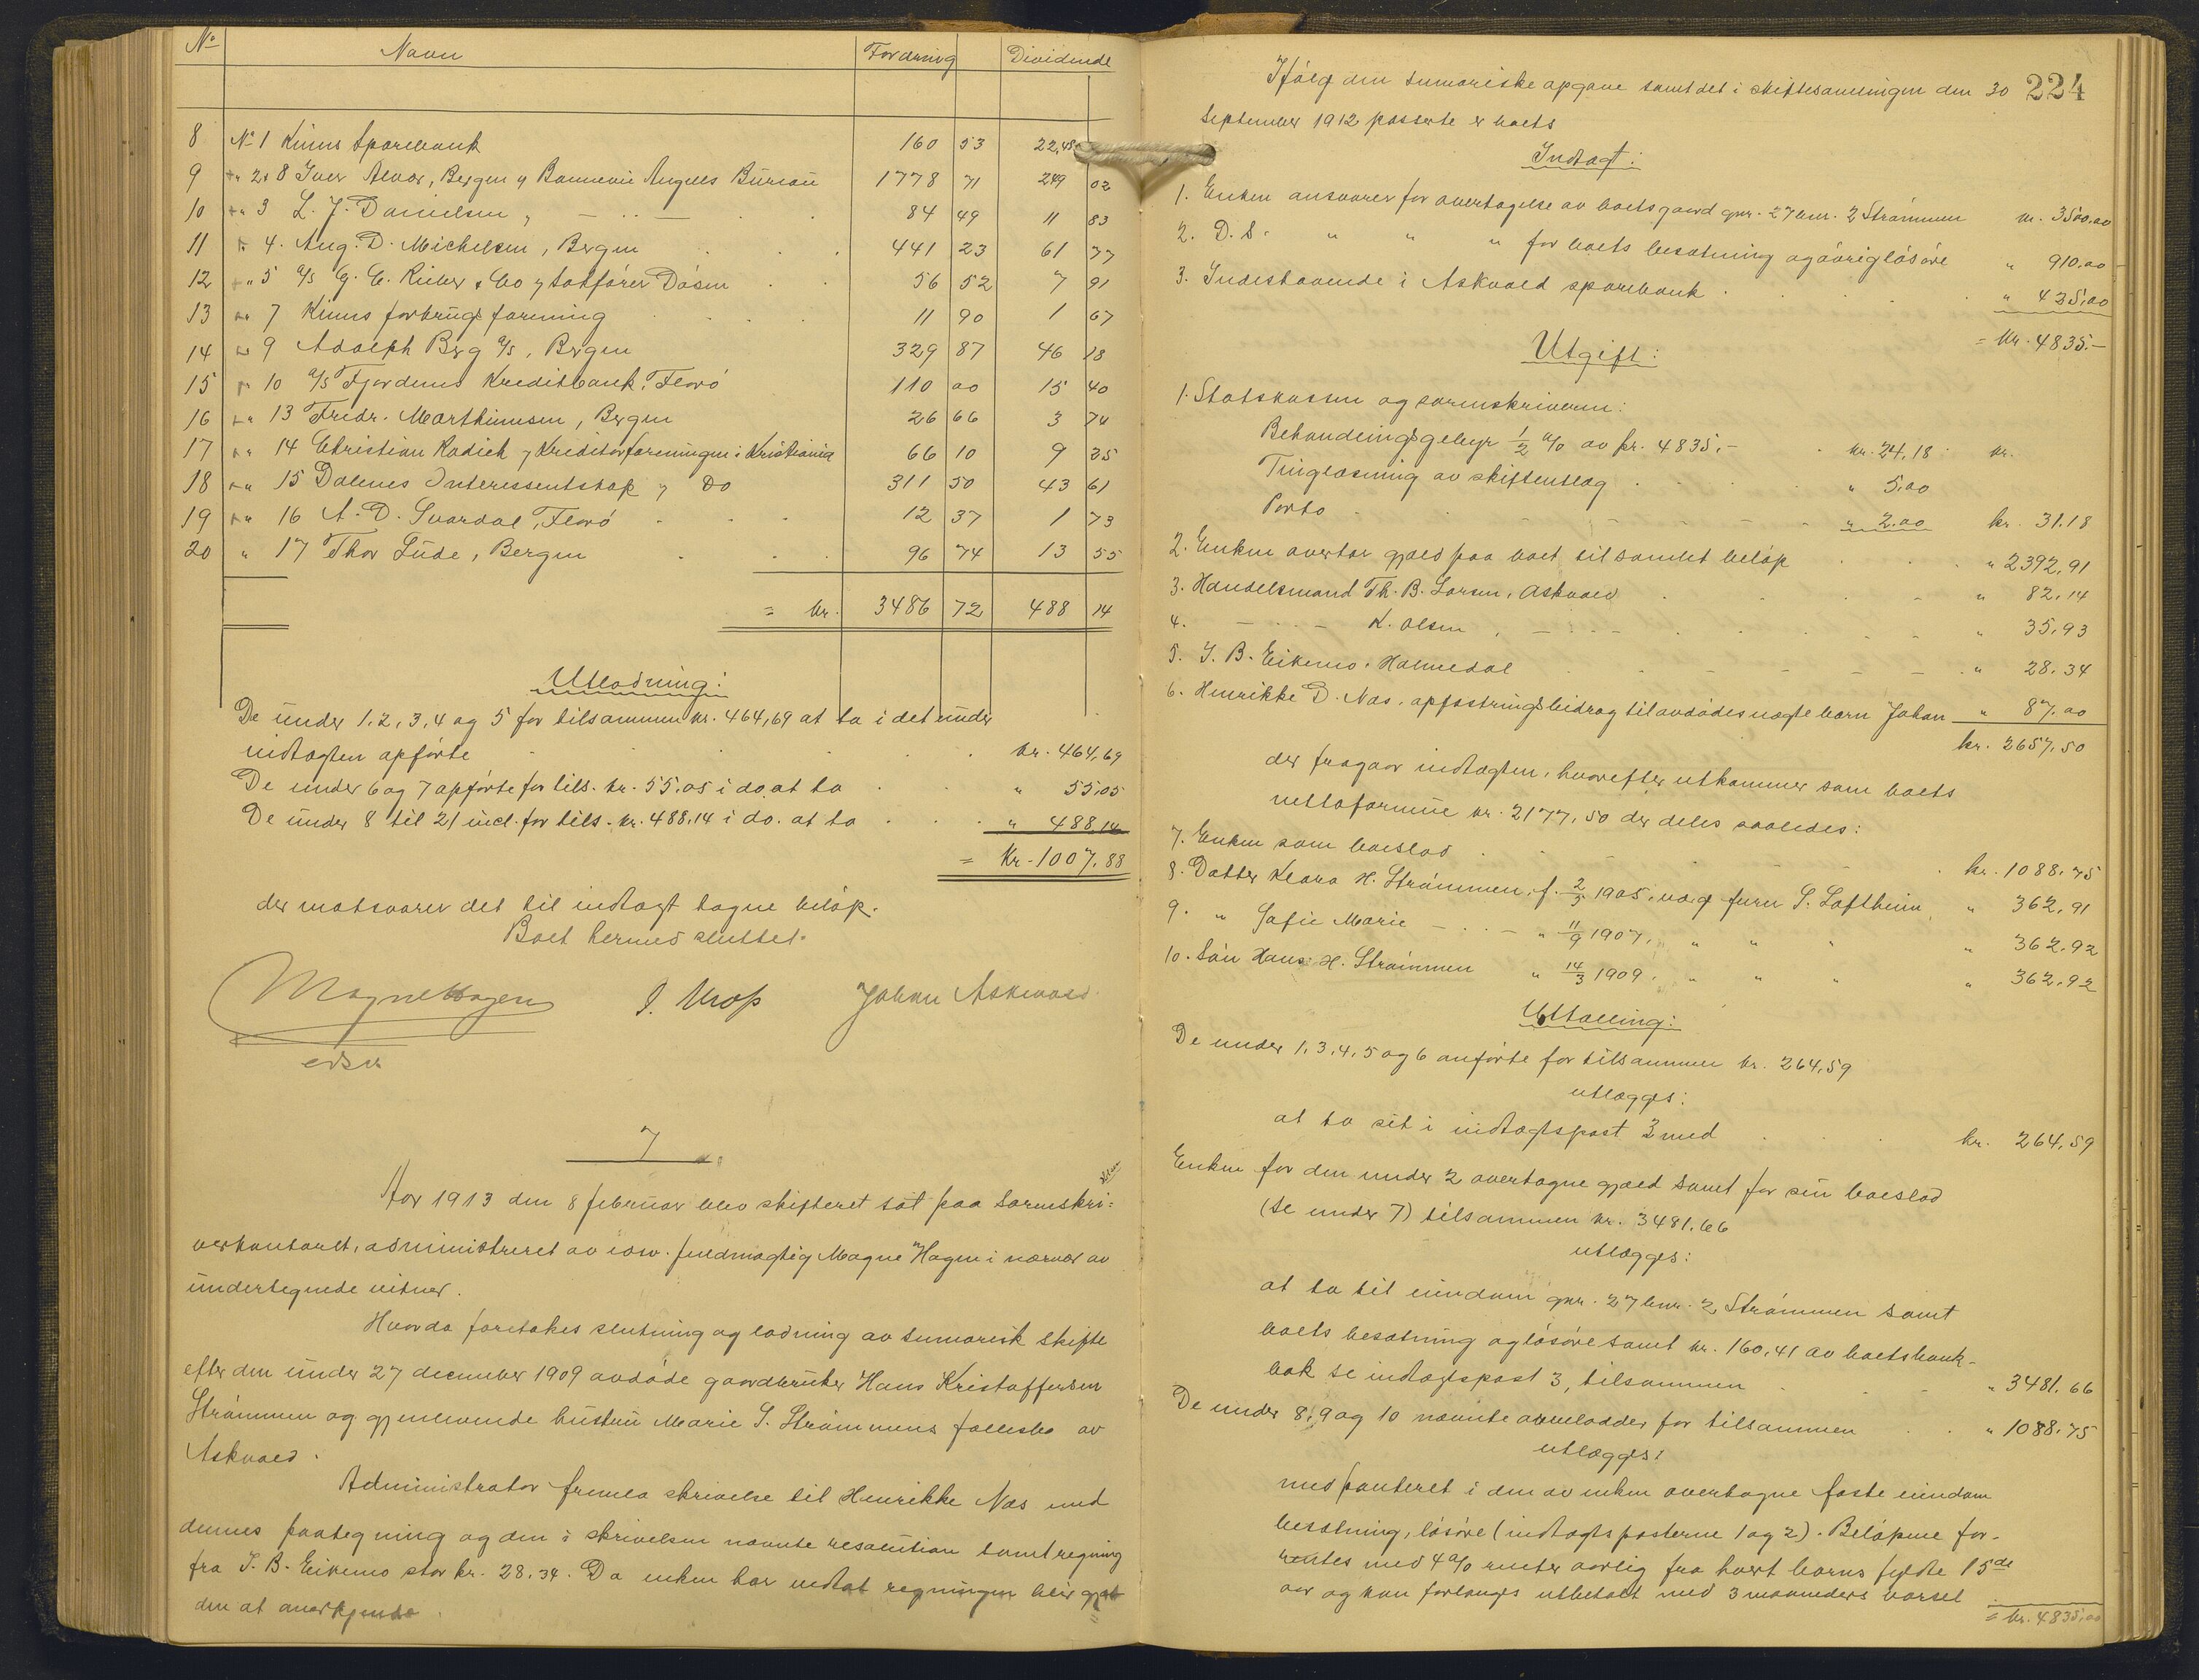 No Navn Fordring Dividende
8 No 1 Kinns Sparebank 160 53 22,48
9 " 2+8 Iver Alvær, Bergen v Bonnevie Angells Bureau 1778 71 249 02
10 " 3 L. J. Danielsen, — " — 84 49 11 83
11 " 4. Aug. D. Michelsen, Bergen 441 23 61 77
12 " 5 a/s G. C. Rieber & Co v sakfører Døsen 56 52 7 91
13 " 7 Kinns forbrugsforening 11 90 1 67
14 " 9 Adolph Berg a/s, Bergen 329 87 46 18
15 " 10 a/s Fjordenes Kreditbank, Florø 110 00 15 40
16 " 13 Fredr. Marthinusen, Bergen 26 66 3 74
17 " 14 Christian Radich v Kreditorforeningen i Kristiania 66 10 9 25
18 " 15 Dalenes Interessentskap v Do 311 50 43 61
19 " 16 A. D. Svardal, Florø 12 37 1 73
20 " 17 Thor Lude, Bergen 96 74 13 55
= kr. 3486 72 488 14
Utlodning:
De under 1, 2, 3, 4 og 5 for tilsammen kr. 464,69 at ta i det under
indtægten opførte kr. 464,69
De under 6 og 7 opførte for tils. kr. 55,05 i do. at ta " 55,05
De under 8 til 21 incl. for tils. kr. 488,14 i do. at ta " 488,14
= Kr. 1007,88
der motsvarer det til indtægt tagne beløp.
Boet hermed sluttet.
Magne Hagen J. Kross Johan Askevold
edsv
7
Aar 1913 den 8 februar blev skifteret sat paa Sorenskri-
verkontoret, administreret av edsv. fuldmægtig Magne Hagen i nærvær av
undertegnede vitner.
Hvorda foretokes slutning og lodning av sumarisk skifte
efter den under 27 december 1909 avdøde gaardbruker Hans Kristoffersen
Strømmen og gjenlevende hustru Marie S. Strømmens fællesbo av
Askvold.
Administrator fremla skrivelse til Henrikke Næs med
dennes paategning og den i skrivelsen nævnte resolution samt regning
fra J. B. Eikemo stor kr. 28,34. Da enken har vedtat regningen blir
den at anerkjende.
224
Ifølge den sumariske opgave samt det i skiftesamlingen den 30
september 1912 passerte er boets
Indtægt:
1. Enken ansvarer for overtagelse av boets gaard gnr. 27 bnr. 2 Strømmen kr. 3500,00
2. D. S. " " " for boets besætning og øvrig løsøre " 910,00
3. Indestaaende i Askvold sparebank " 425,00
= kr. 4835.—
Utgift:
1. Statskassen og sorenskriveren:
Behandlingsgebyr 1/2 % av kr. 4835,- kr. 24,18 kr.
Tinglæsning av skifteutlæg " 5,00
Porto " 2.00 kr. 31.18
2. Enken overtar gjæld paa boet til samlet beløp " 2392,91
3. Handelsmand Th. B. Larsen, Askvold " 82,14
4. — " — K. Olsen, — " — " 35,93
5. J. B. Eikemo, Holmedal " 28,34
6. Henrikke D. Næs, opfostringsbidrag til avdødes uægte barn Johan " 87,00
kr. 2657,50
der fragaar indtægten, hvorefter utkommer som boets
nettoformue kr. 2177,50 der deles saaledes:
7. Enken som boeslod kr. 1088,75
8. Datter Klara H. Strømmen, f. 2/3 1905, værge S. Loftheim " 362,91
9. " Sofie Marie — " — " 11/9 1907, " " " " 362,92
10. Søn Hans H. Strømmen " 14/3 1909, " " " " 362,92
Uttælling:
De under 1, 3, 4, 5 og 6 anførte for tilsammen kr. 264,59
utlægges:
at ta sit i indtægtspost 3 med kr. 264,59
Enken for den under 2 overtagne gjæld samt for sin boeslod
(se under 7) tilsammen kr. 3481,66
utlægges:
at ta til eiendom gnr. 27 bnr. 2 Strømmen samt
boets besætning og løsøre samt kr. 160,41 av boets bank-
bok se indtægtspost 3, tilsammen " 3481,66
De under 8, 9 og 10 nævnte arvelodder for tilsammen " 1088,75
utlægges:
med panteret i den av enken overtagne faste eiendom
besætning, løsøre (indtægtsposterne 1 og 2). Beløpene for-
rentes med 4 % renter aarlig fra hvert barns fyldte 15de
aar og kan forlanges utbetalt med 3 maaneders varsel
= kr. 4835,00